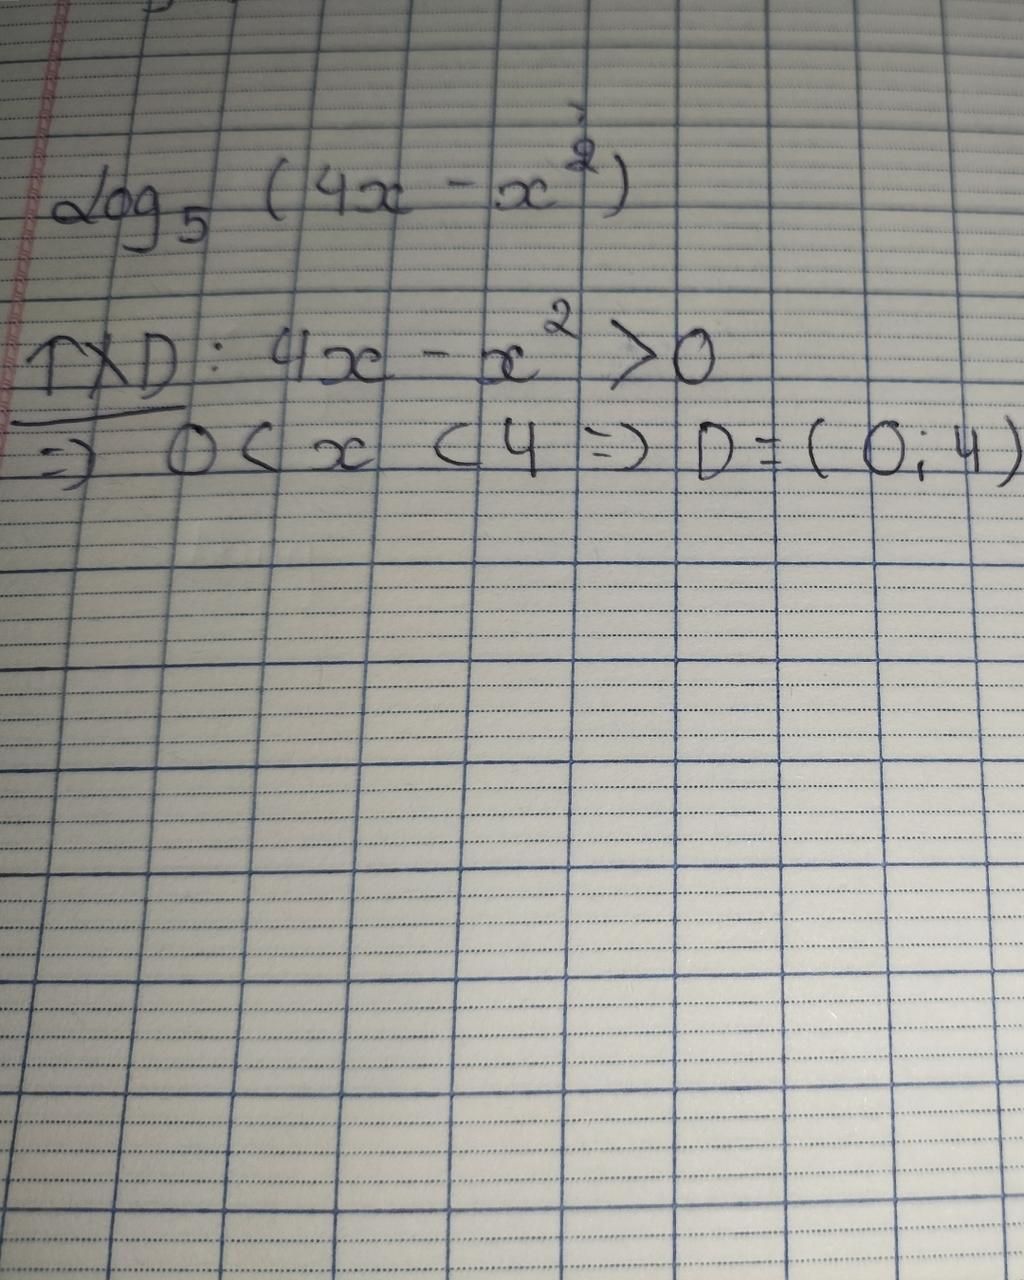 log₅ (4x - x²)
TXD: 4x - x² > 0
=> 0 < x < 4 => D = (0; 4)